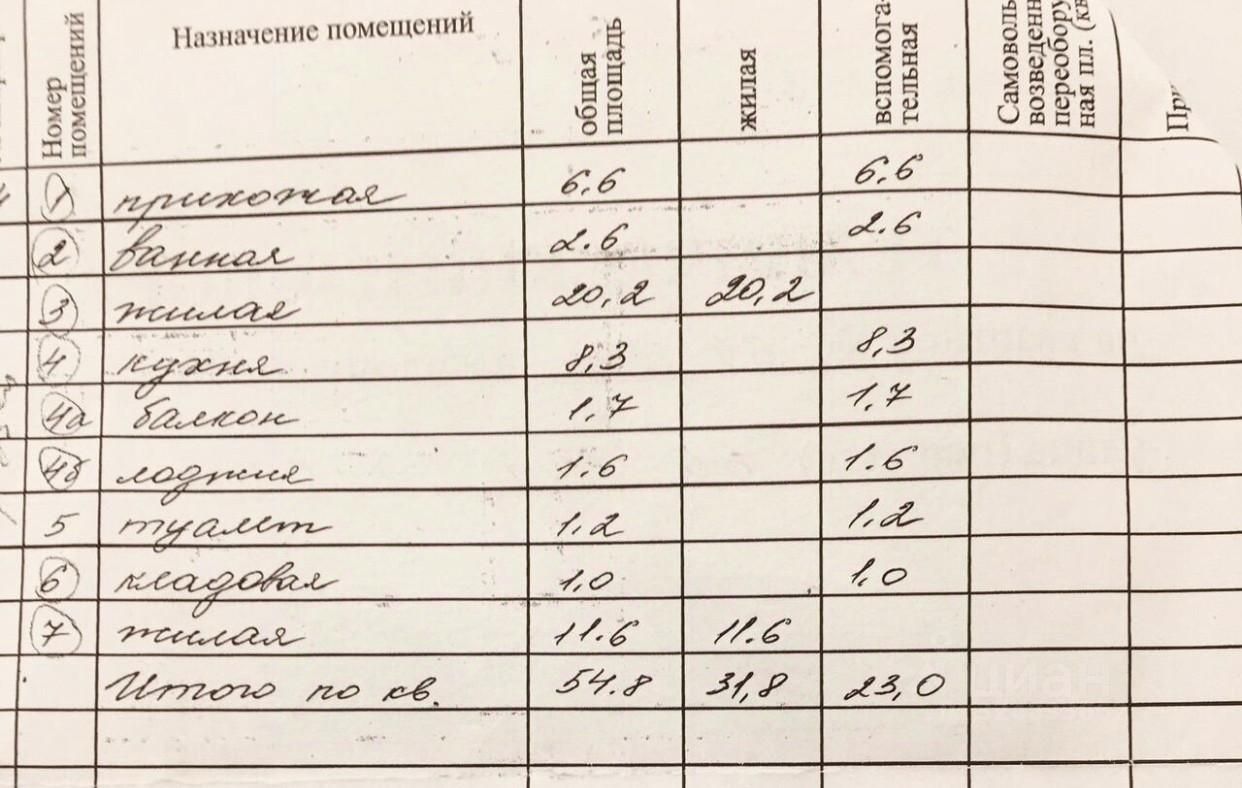 Номер помещений Назначение помещений общая площадь жилая вспомога-тельная
1 прихожая 6,6 6,6
2 ванная 2.6 2.6
3 жилая 20,2 20,2
4 кухня 8,3 8,3
4а балкон 1,7 1,7
4б лоджия 1.6 1.6
5 туалет 1,2 1,2
6 кладовая 1,0 1,0
7 жилая 11.6 11.6
Итого по кв. 54.8 31,8 23,0
циан